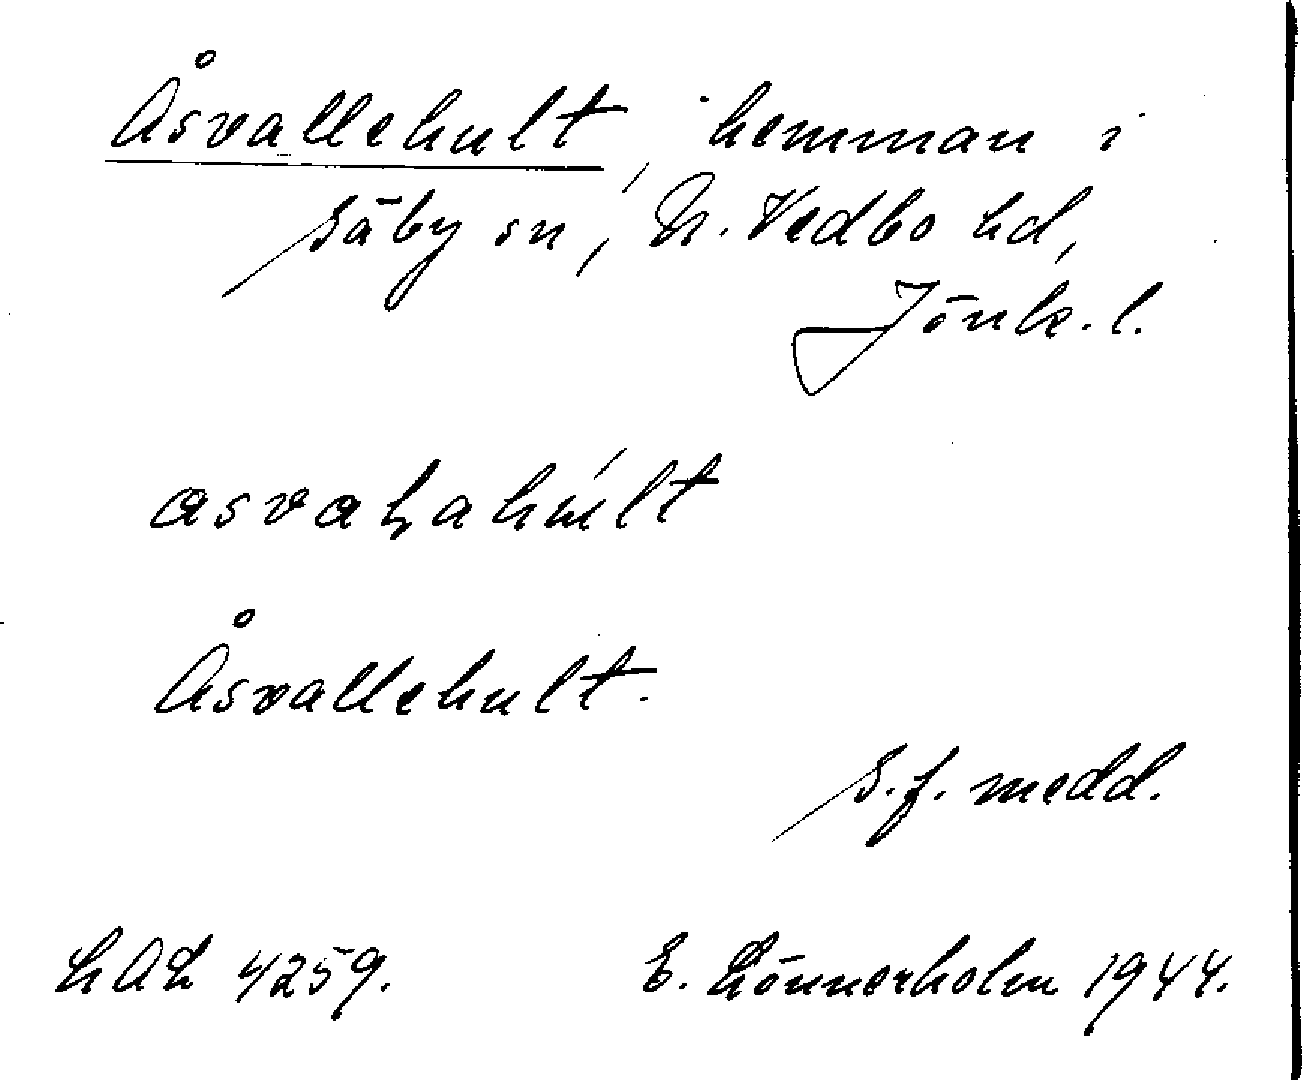 Åsvallehult, hemman i
Säby sn, N. Vedbo hd,
Jönk. l.
Åsvallehult.
S.f. medd.
LAL 4259. E. Lönnerholm 1944.